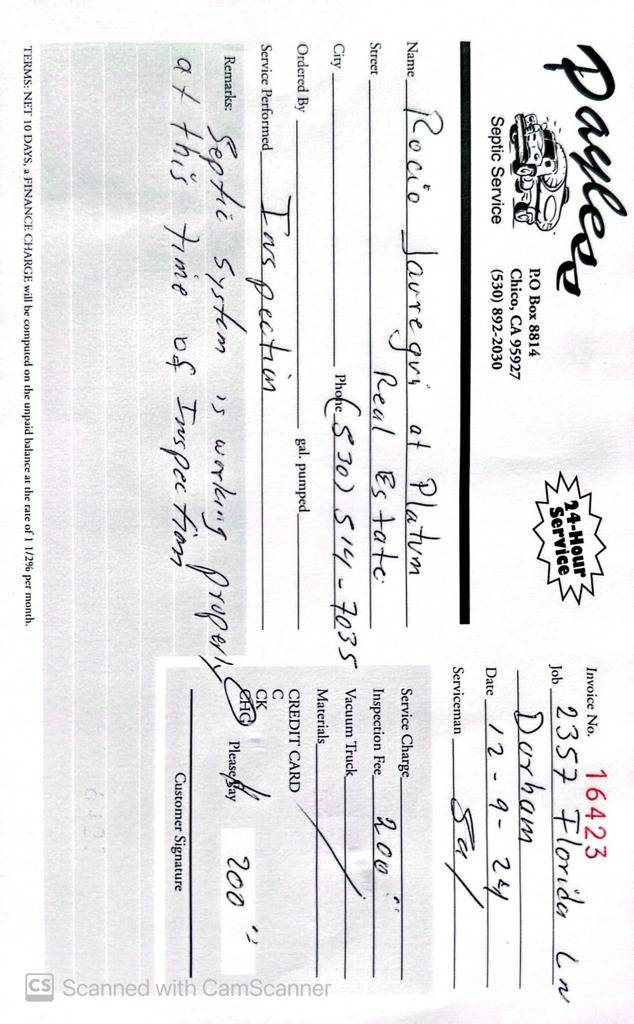 Payless
Septic Service
P.O Box 8814
Chico, CA 95927
(530) 892-2030
24-Hour
Service
Invoice No. 16423
Job 2357 Florida Ln
Durham
Date 12-9-24
Serviceman Sal
Name Rocio Jauregui at Platum
Street Real Estate
City Phone (530) 514-7035
Ordered By gal. pumped
Service Performed Inspection
Remarks: Septic System is working properly
at this time of Inspection
Service Charge
Inspection Fee 200
Vacuum Truck
Materials
CREDIT CARD
C
CK
CHG Please Pay 200
Customer Signature
TERMS: NET 10 DAYS, a FINANCE CHARGE will be computed on the unpaid balance at the rate of 1 1/2% per month.
CS Scanned with CamScanner